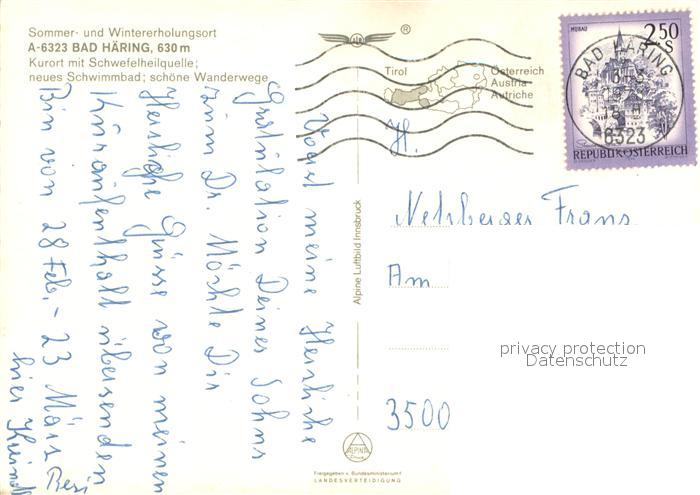 Sommer- und Wintererholungsort
A-6323 BAD HÄRING, 630 m
Kurort mit Schwefelheilquelle;
neues Schwimmbad; schöne Wanderwege
ALP
®
Tirol
Österreich
Austria
Autriche
2.50
S
MURAU
REPUBLIK ÖSTERREICH
BAD HÄRING
6323
meine Herzliche
Gratulation Deines Sohns
zum Dr. Möchte Dir
Herzliche Grüsse von meinen
Kuraufenthalt übersenden
Bin von 28 Feb. - 23 März
hier
Resi
H.
Netzberger Frans
Am
3500
Alpine Luftbild Innsbruck
privacy protection
Datenschutz
ALPINE
Freigegeben v. Bundesministerium f.
LANDSVERTEIDIGUNG